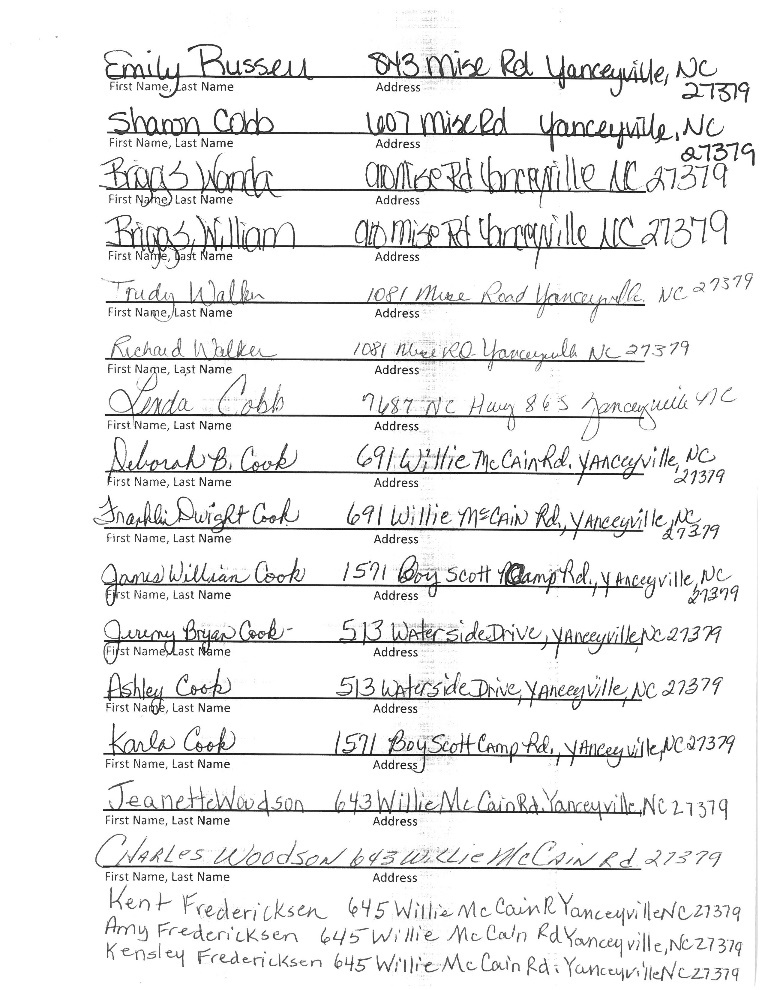 Emily Russell 843 Mise Rd Yanceyville, NC
27379
First Name, Last Name Address
Sharon Cobb 607 Mise Rd Yanceyville, NC
27379
First Name, Last Name Address
Briggs Wanda 910 Mise Rd Yanceyville NC 27379
First Name, Last Name Address
Briggs, William 910 Mise Rd Yanceyville NC 27379
First Name, Last Name Address
Trudy Walker 1081 Mise Road Yanceyville NC 27379
First Name, Last Name Address
Richard Walker 1081 Mise RD Yanceyville NC 27379
First Name, Last Name Address
Linda Cobb 7687 NC Hwy 86 S Yanceyville NC
First Name, Last Name Address
Deborah B. Cook 691 Willie McCain Rd. Yanceyville, NC
27379
First Name, Last Name Address
Franklin Dwight Cook 691 Willie McCain Rd., Yanceyville, NC
27379
First Name, Last Name Address
James William Cook 1571 Boy Scott Camp Rd., Yanceyville, NC
27379
First Name, Last Name Address
Jeremy Bryan Cook 513 Waterside Drive, Yanceyville NC 27379
First Name, Last Name Address
Ashley Cook 513 Waterside Drive, Yanceyville, NC 27379
First Name, Last Name Address
Karla Cook 1571 Boy Scott Camp Rd., Yanceyville, NC 27379
First Name, Last Name Address
Jeanette Woodson 643 Willie McCain Rd. Yanceyville, NC 27379
First Name, Last Name Address
Charles Woodson 643 Willie McCain Rd 27379
First Name, Last Name Address
Kent Fredericksen 645 Willie McCain R Yanceyville NC 27379
Amy Fredericksen 645 Willie McCain Rd Yanceyville, NC 27379
Kensley Fredericksen 645 Willie McCain Rd. Yanceyville NC 27379